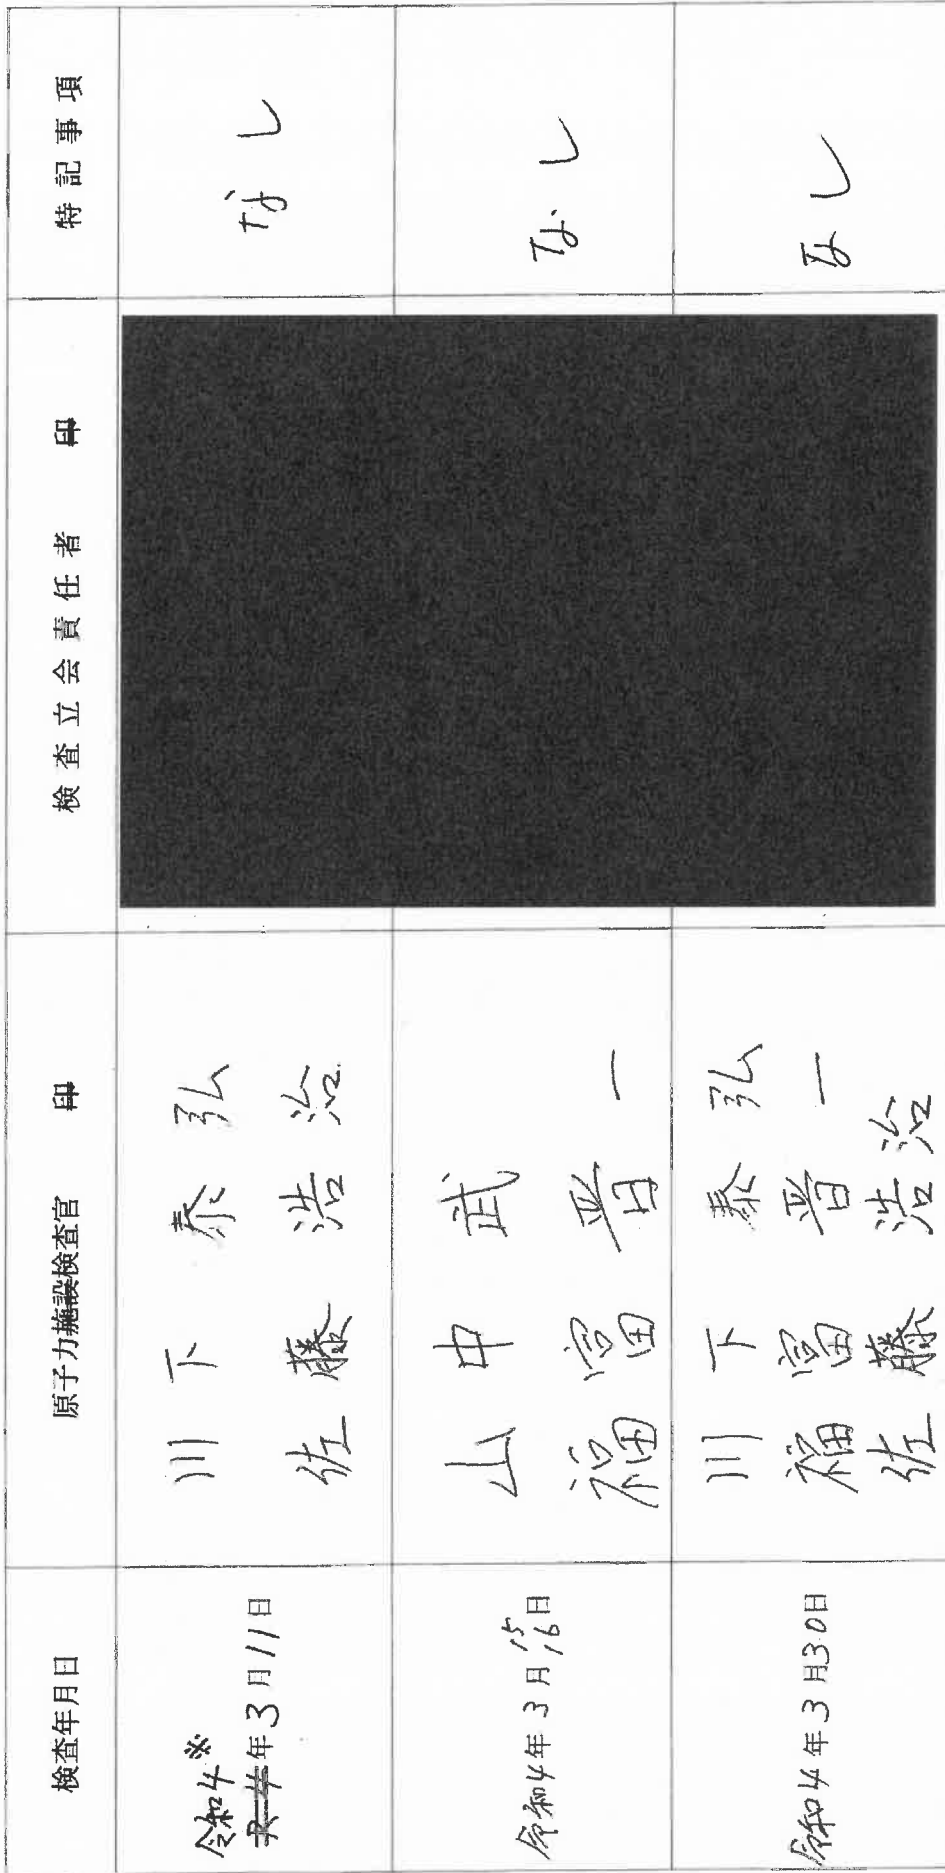 検査年月日 原子力施設検査官 印 検査立会責任者 印 特記事項
令和4※
年3月11日
川下 泰弘
佐藤 浩治
なし
令和4年3月15日
16
山中 武
福富 晋一
なし
令和4年3月30日
川下 泰弘
福富 晋一
佐藤 浩治
なし